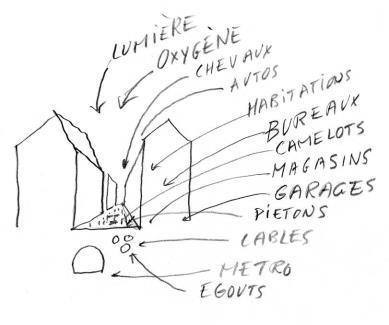 LUMIÈRE
OXYGÈNE
CHEVAUX
AUTOS
HABITATIONS
BUREAUX
CAMELOTS
MAGASINS
GARAGES
PIETONS
CABLES
METRO
EGOUTS